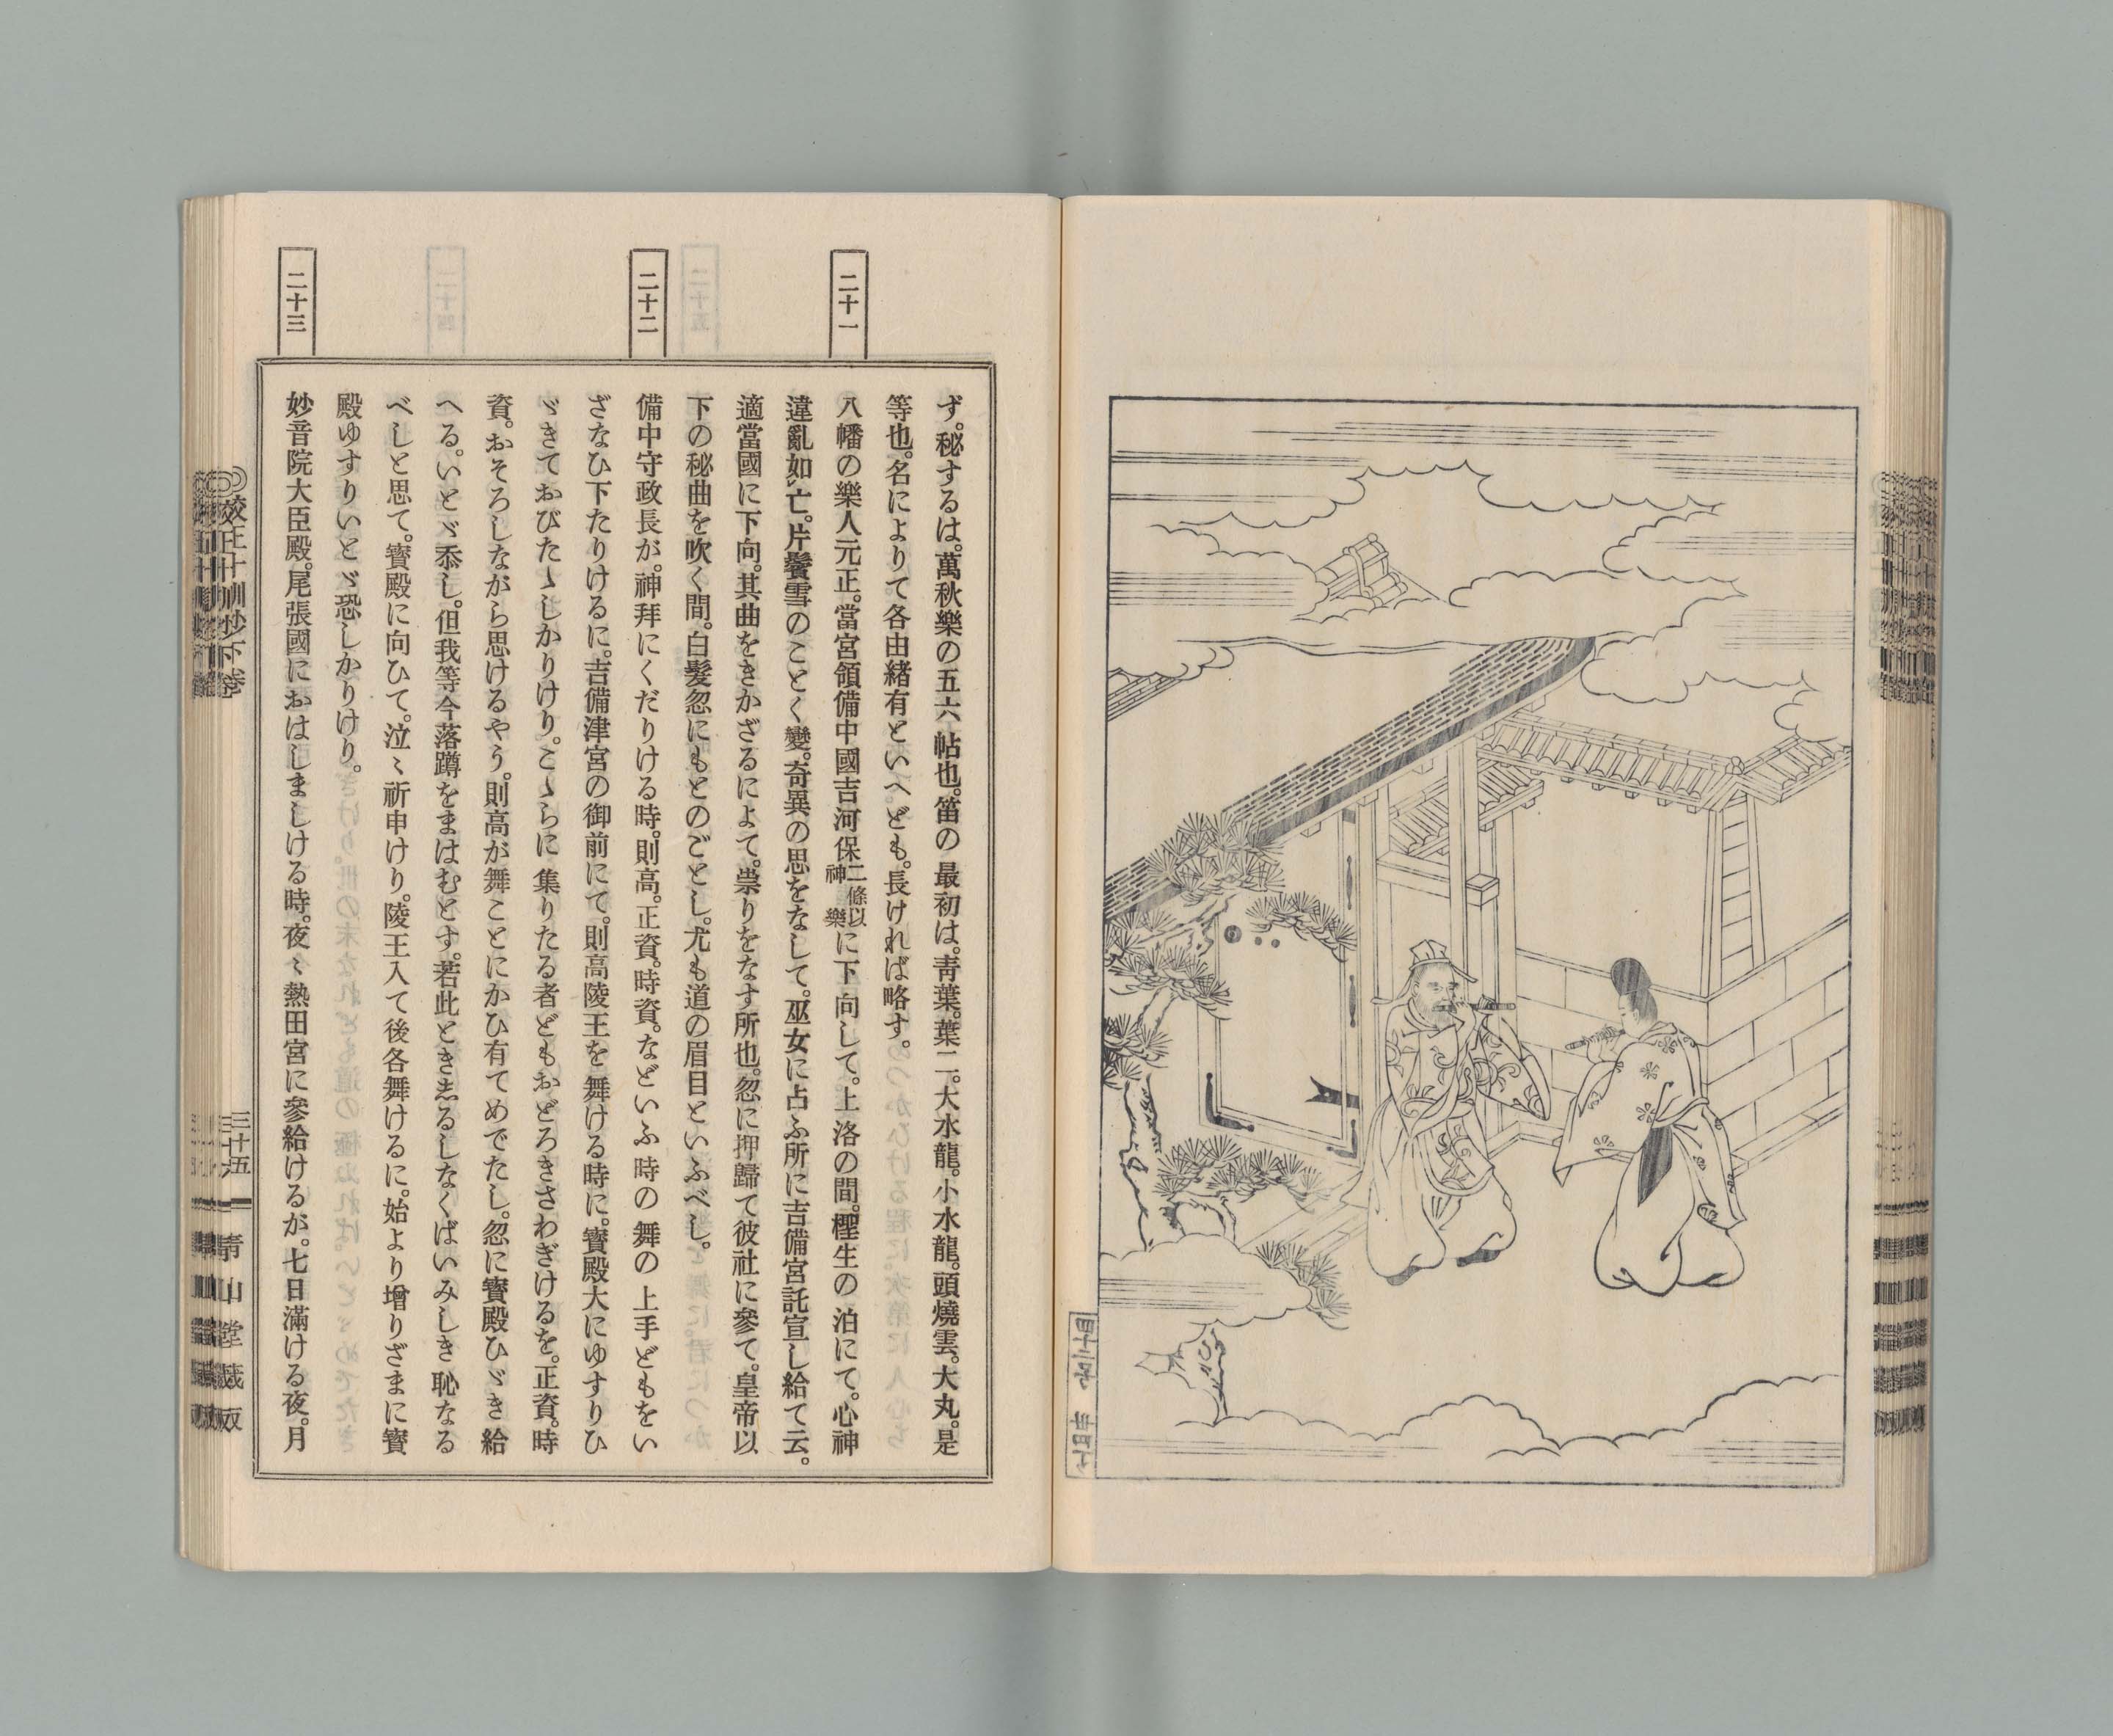 ず。秘するは。萬秋樂の五六帖也。笛の最初は。靑葉。葉二。大水龍。小水龍。頭燒雲。大丸。是
等也。名によりて各由緒有といへども。長ければ略す。
二十一
八幡の樂人元正。當宮領備中國吉河保二條以神樂に下向して。上洛の間。檉生の泊にて。心神
違亂如亡。片鬢雪のことく變。奇異の思をなして。巫女に占ふ所に吉備宮託宣し給て云。
適當國に下向。其曲をきかざるによて。祟りをなす所也。忽に押歸て彼社に參て。皇帝以
下の秘曲を吹く間。白髮忽にもとのごとし。尤も道の眉目といふべし。
二十二
備中守政長が。神拜にくだりける時。則高。正資。時資。などいふ時の舞の上手どもをい
ざなひ下たりけるに。吉備津宮の御前にて。則高陵王を舞ける時に。寳殿大にゆすりひ
ゞきておびたゝしかりけり。こゝらに集りたる者どもおどろきさわぎけるを。正資。時
資。おそろしながら思けるやう。則高が舞ことにかひ有てめでたし。忽に寳殿ひゞき給
へる。いとゞ忝し。但我等今落蹲をまはむとす。若此ときゑるしなくばいみしき恥なる
べしと思て。寳殿に向ひて。泣〻祈申けり。陵王入て後各舞けるに。始より增りざまに寳
殿ゆすりいとゞ恐しかりけり。
二十三
妙音院大臣殿。尾張國におはしましける時。夜〻熱田宮に參給けるが。七日滿ける夜。月
校正十訓抄下卷
三十五
靑山堂藏版